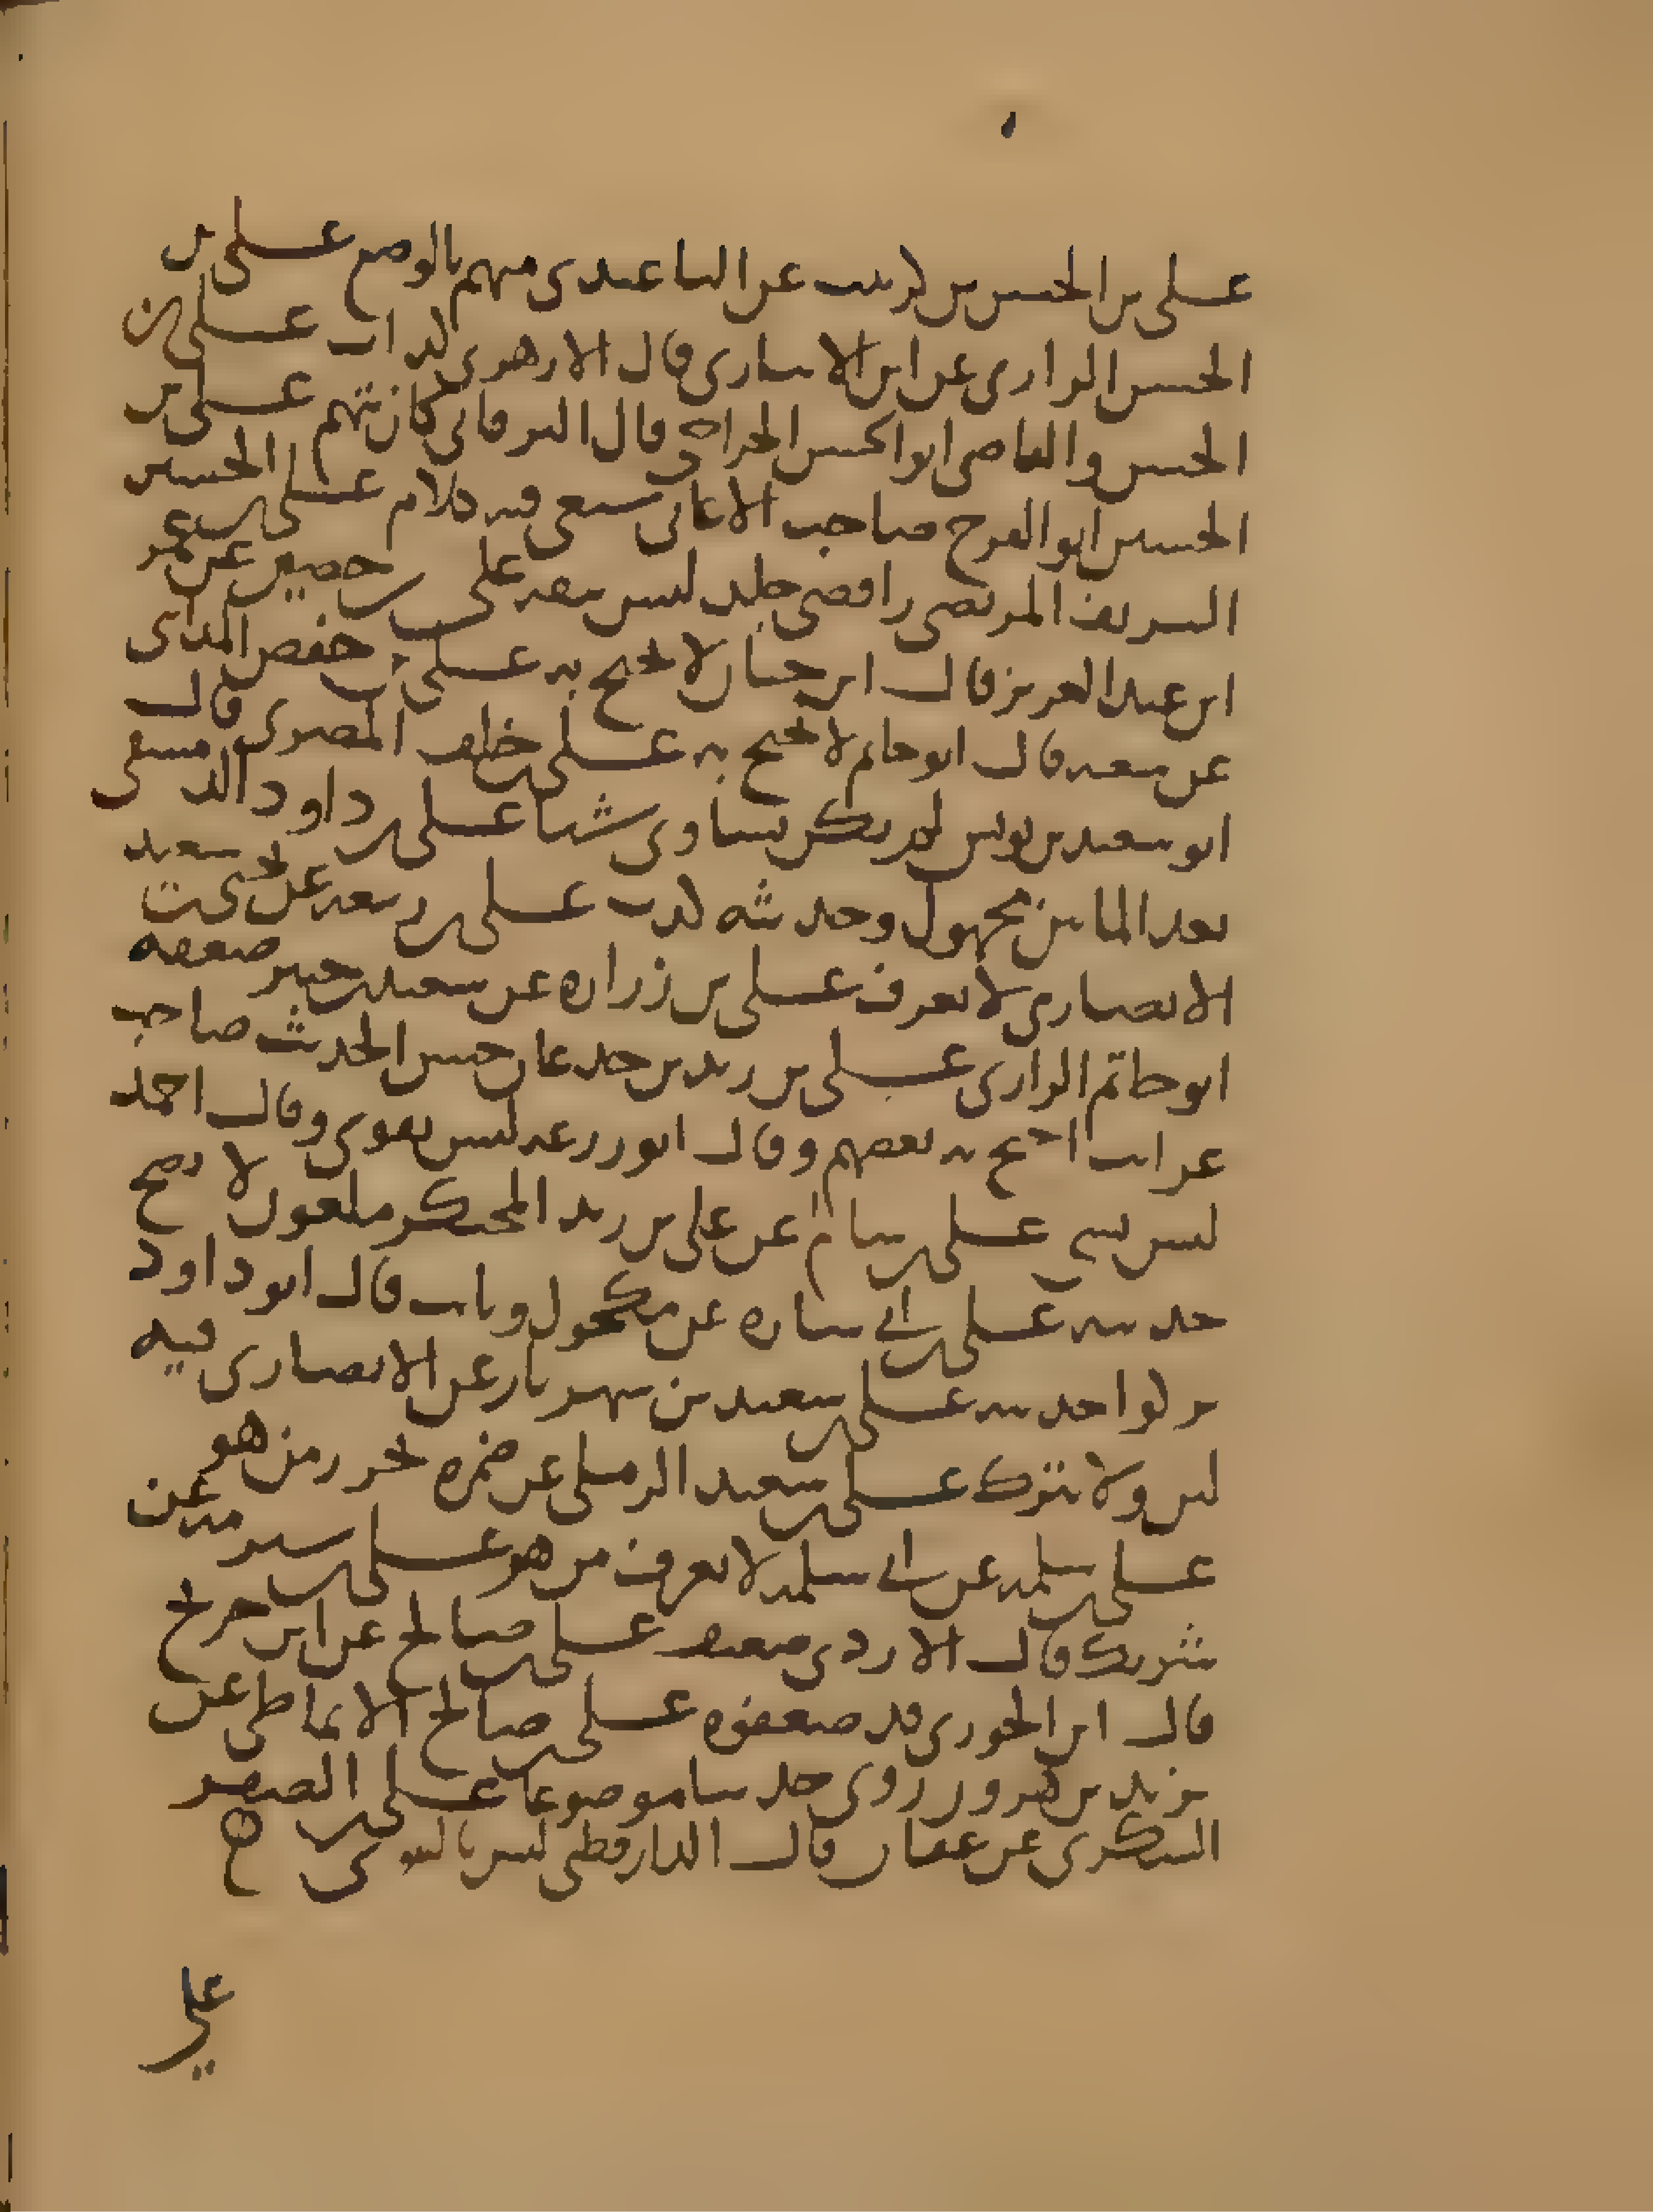 علي بن الحسن بن كرنيب عن الباغندي متهم بالوضع علي بن
الحسن الرازي عن ابن الانباري قال الازهري كذاب علي بن
الحسن والقاضي ابو الحسن الجراحي قال البرقاني كان يتهم علي بن
الحسين ابو الفرج صاحب الاغاني شيعي فيه كلام علي بن الحسين
الشريف المرتضى رافضي جلد ليس بثقة علي بن حصين عن عمر
ابن عبد العزيز قال ابن حبان لا يحتج به علي بن حفص المدائني
عن شعبة قال ابو حاتم لا يحتج به علي بن خلف المصري قال
ابو سعيد بن يونس لم يكن يساوي شيا علي بن داود الدمشقي
بعد المائتين مجهول وحديثه كذب علي بن ربيعة عن يحيى بن سعيد
الانصاري لا يعرف علي بن زرارة عن سعيد بن جبير ضعفه
ابو حاتم الرازي علي بن زيد بن جدعان حسن الحديث صاحب
غرائب احتج به بعضهم وقال ابو زرعة ليس بقوي وقال احمد
ليس بشي علي بن سام عن علي بن زيد المحتكر ملعون لا يصح
حديثه علي بن ابي سارة عن مكحول وثابت قال ابو داود
تركوا حديثه علي بن سعيد بن شهريار عن الانصاري فيه
لين ولا يترك علي بن سعيد الرملي عن ضمرة يحرر من هو
علي بن سلمة عن ابي سلمة لا يعرف من هو علي بن عن
شريك قال الازدي ضعيف علي بن صالح عن ابن جريج
قال ابن الجوزي قد ضعفوه علي بن صالح الانماطي عن
يزيد بن هرون روى حديثا موضوعا علي بن الصقر
السكري عن عفان قال الدارقطني ليس بالقوي
علي